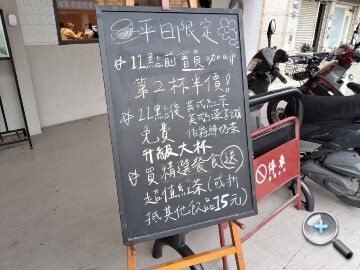 平日限定
11點前買貝
第2杯半價!
11點後 英式紅茶
免費
伯爵鮮奶茶
升級大杯
買精選餐食送
超值紅茶(或折
抵其他飲品15元)
停車